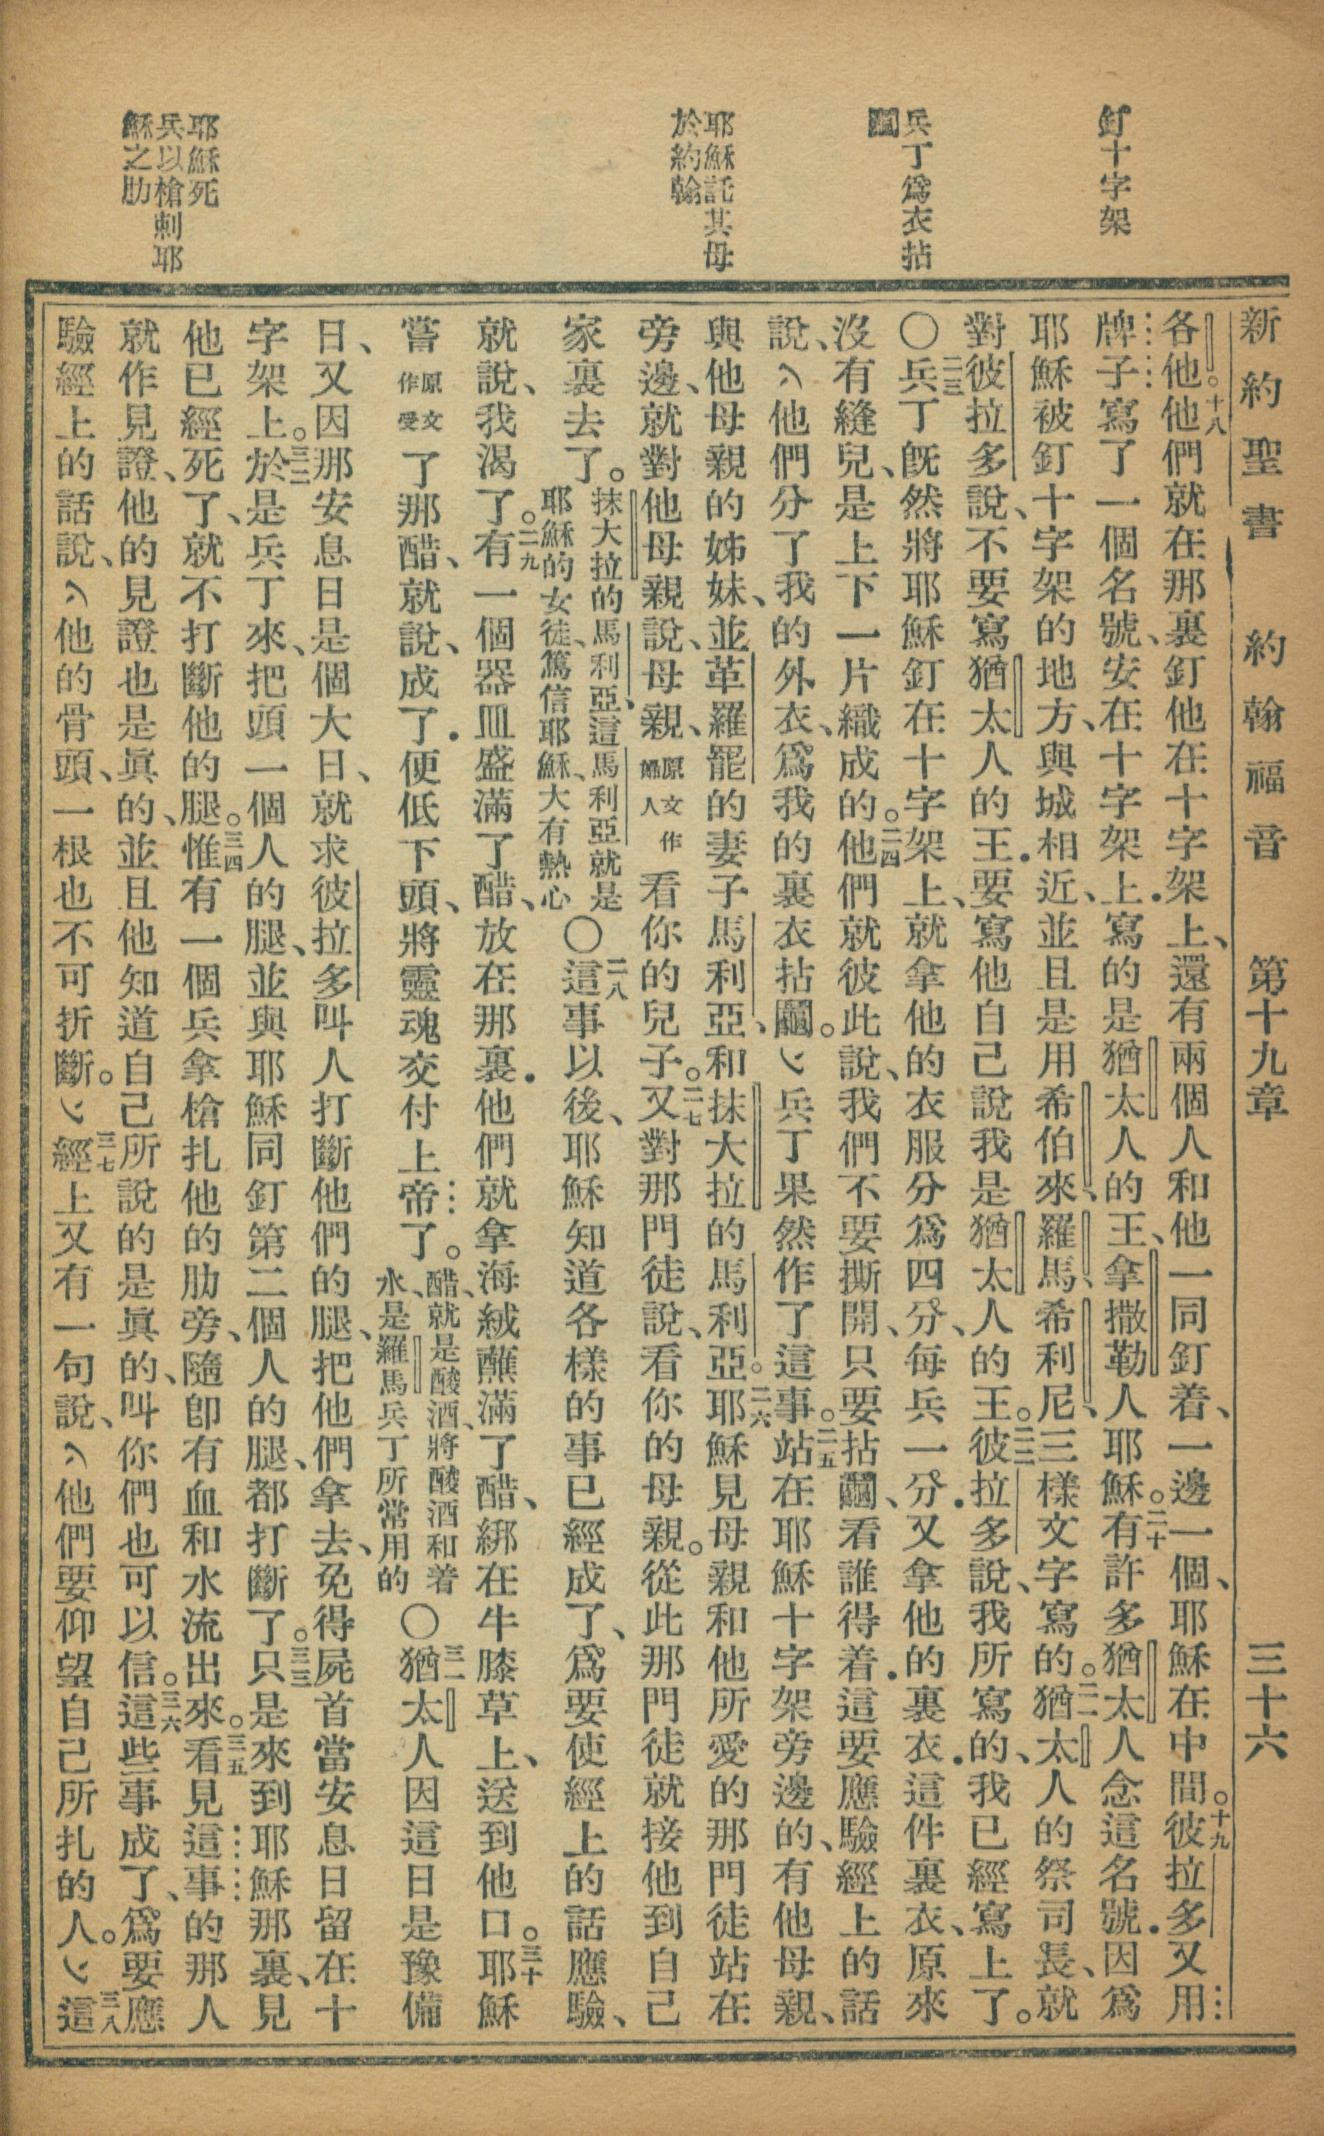 釘十字架
兵丁爲衣拈
鬮
耶穌託其母
於約翰
耶穌死
兵以槍刺耶
穌之肋
新約聖書 約翰福音 第十九章 三十六
各他。十八他們就在那裏釘他在十字架上、還有兩個人和他一同釘着、一邊一個、耶穌在中間。十九彼拉多又用
牌子寫了一個名號、安在十字架上.寫的是猶太人的王、拿撒勒人耶穌。二十有許多猶太人念這名號.因爲
耶穌被釘十字架的地方、與城相近、並且是用希伯來、羅馬、希利尼、三樣文字寫的。二一猶太人的祭司長、就
對彼拉多說、不要寫猶太人的王.要寫他自己說我是猶太人的王。二二彼拉多說、我所寫的、我已經寫上了。
〇二三兵丁既然將耶穌釘在十字架上、就拿他的衣服分爲四分、每兵一分.又拿他的裏衣.這件裏衣、原來
沒有縫兒、是上下一片織成的。二四他們就彼此說、我們不要撕開、只要拈鬮、看誰得着.這要應驗經上的話
說、他們分了我的外衣、爲我的裏衣拈鬮。兵丁果然作了這事。二五站在耶穌十字架旁邊的、有他母親、
與他母親的姊妹、並革羅罷的妻子馬利亞、和抹大拉的馬利亞。二六耶穌見母親和他所愛的那門徒站在
旁邊、就對他母親說、母親、原文作婦人看你的兒子。二七又對那門徒說、看你的母親。從此那門徒就接他到自己
家裏去了。抹大拉的馬利亞、這馬利亞就是耶穌的女徒、篤信耶穌、大有熱心〇二八這事以後、耶穌知道各樣的事已經成了、爲要使經上的話應驗、
就說、我渴了。二九有一個器皿盛滿了醋、放在那裏.他們就拿海絨蘸滿了醋、綁在牛膝草上、送到他口。三十耶穌
嘗原文作受了那醋、就說、成了.便低下頭、將靈魂交付上帝了。醋、就是酸酒、將酸酒和着水、是羅馬兵丁所常用的〇三一猶太人因這日是豫備
日、又因那安息日是個大日、就求彼拉多叫人打斷他們的腿、把他們拿去、免得屍首當安息日留在十
字架上。三二於是兵丁來、把頭一個人的腿、並與耶穌同釘第二個人的腿、都打斷了。三三只是來到耶穌那裏、見
他已經死了、就不打斷他的腿。三四惟有一個兵拿槍扎他的肋旁、隨卽有血和水流出來。三五看見這事的那人
就作見證、他的見證也是眞的、並且他知道自己所說的是眞的、叫你們也可以信。三六這些事成了、爲要應
驗經上的話說、他的骨頭、一根也不可折斷。三七經上又有一句說、他們要仰望自己所扎的人。三八這